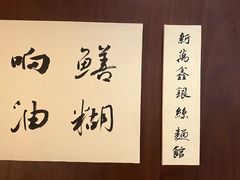 新萬鑫銀絲麵館
响油
鱔糊